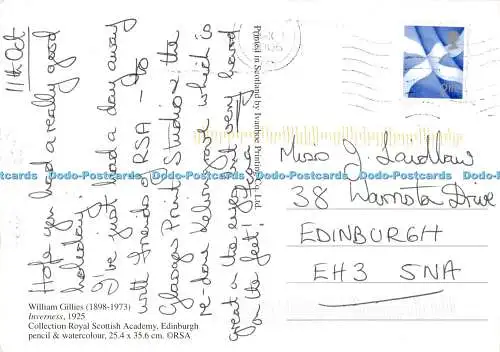 11th Oct
Hope you had a really good
holiday!
I've just had a day away
with Friends of RSA – to
Glasgow Print Studio & the
re-done Kelvingrove which is
great on the eyes and very hard
on the feet!
William Gillies (1898-1973)
Inverness, 1925
Collection Royal Scottish Academy, Edinburgh
pencil & watercolour, 25.4 x 35.6 cm. ©RSA
Printed in Scotland by Ivanhoe Printing Co. Ltd.
Miss J. Laidlaw
38 Drive
EDINBURGH
EH3 5NA
Dodo-Postcards Dodo-Postcards Dodo-Postcards Dodo-Postcards Dodo-Postcards